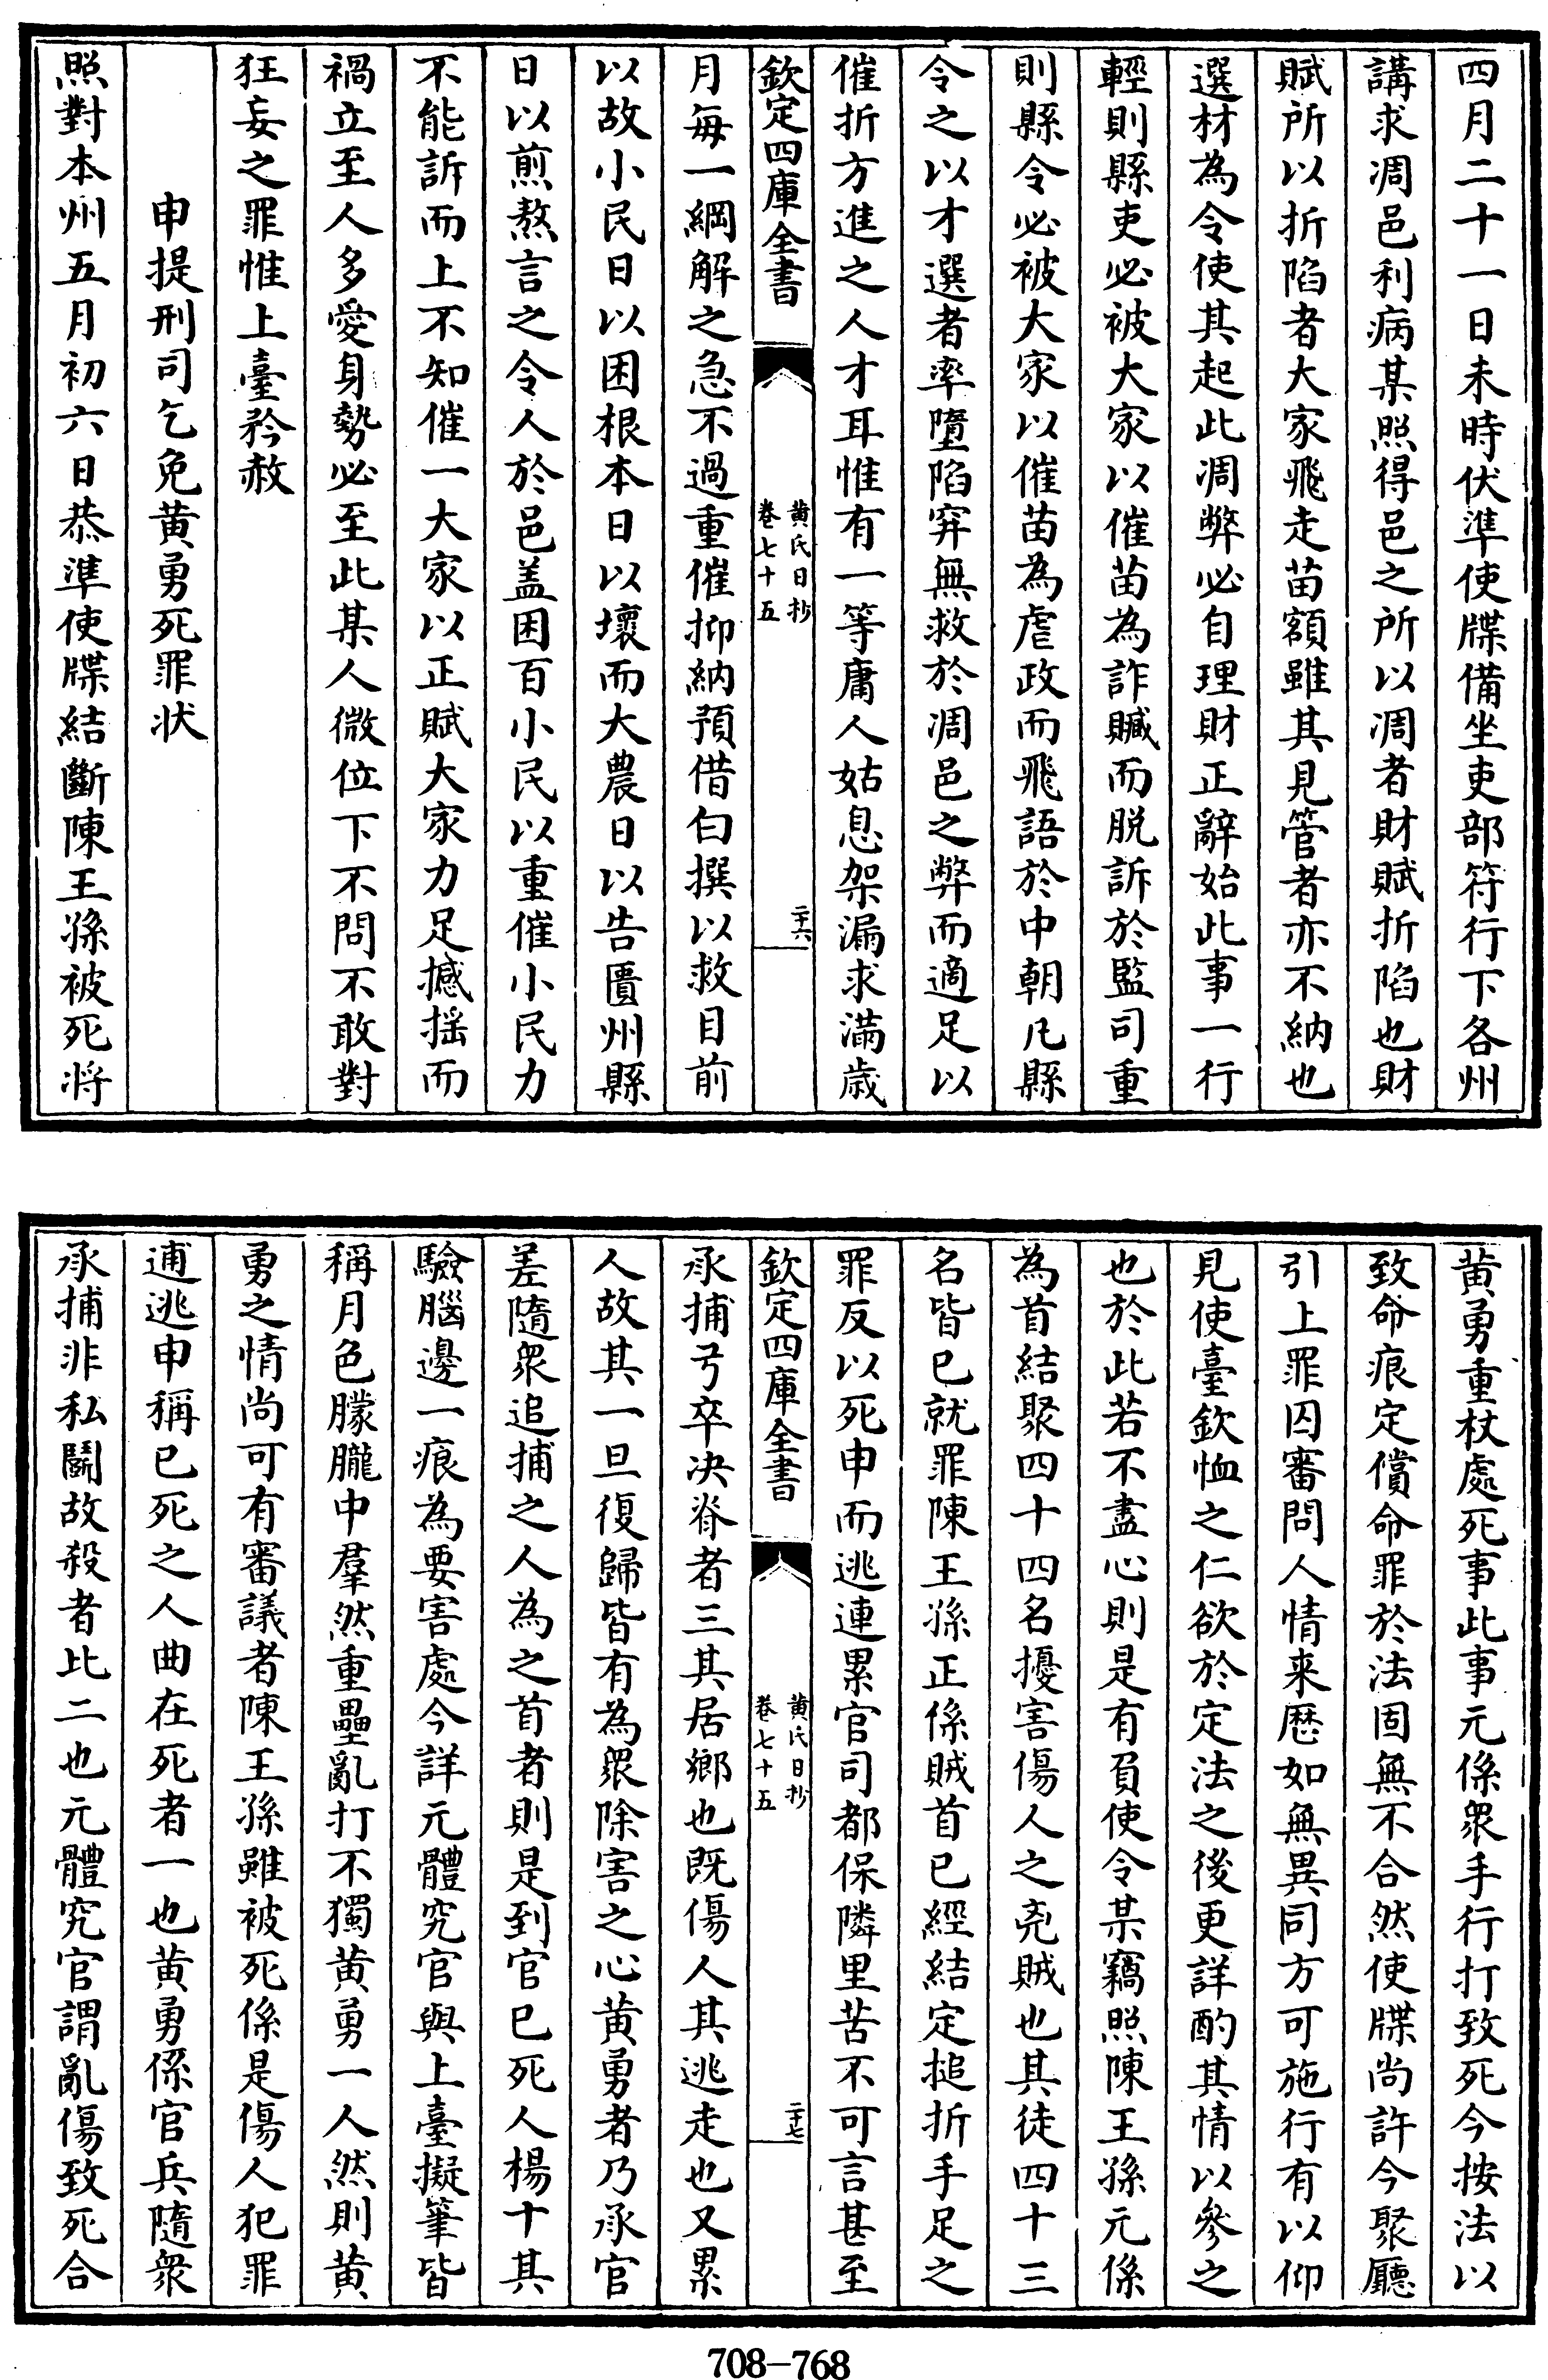 四月二十一日未時伏準使牒備坐吏部符行下各州
講求凋邑利病某照得邑之所以凋者財賦折陷也財
賦所以折陷者大家飛走苗額雖其見管者亦不納也
選材為令使其起此凋弊必自理財正辭始此事一行
輕則縣吏必被大家以催苗為詐贓而脱訴於監司重
則縣令必被大家以催苗為虐政而飛語於中朝凡縣
令之以才選者率墮陷穽無救於凋邑之弊而適足以
催折方進之人才耳惟有一等庸人姑息架漏求滿歳
欽定四庫全書
黄氏日抄
卷七十五
二十六
月每一綱解之急不過重催抑納預借白撰以救目前
以故小民日以困根本日以壞而大農日以告匱州縣
日以煎熬言之令人於邑盖困百小民以重催小民力
不能訴而上不知催一大家以正賦大家力足撼揺而
禍立至人多愛身勢必至此某人微位下不問不敢對
狂妄之罪惟上臺矜赦
申提刑司乞免黄勇死罪状
照對本州五月初六日恭準使牒結斷陳王孫被死将
黄勇重杖處死事此事元係衆手行打致死今按法以
致命痕定償命罪於法固無不合然使牒尚許今聚廳
引上罪囚審問人情来歴如無異同方可施行有以仰
見使臺欽恤之仁欲於定法之後更詳酌其情以參之
也於此若不盡心則是有負使令某竊照陳王孫元係
為首結聚四十四名擾害傷人之兇賊也其徒四十三
名皆已就罪陳王孫正係賊首已經結定搥折手足之
罪反以死申而逃連累官司都保隣里苦不可言甚至
欽定四庫全書
黄氏日抄
卷七十五
二十七
承捕弓卒决脊者三其居鄉也既傷人其逃走也又累
人故其一旦復歸皆有為衆除害之心黄勇者乃承官
差隨衆追捕之人為之首者則是到官已死人楊十其
驗腦邊一痕為要害處今詳元體究官與上臺擬筆皆
稱月色朦朧中羣然重壘亂打不獨黄勇一人然則黄
勇之情尚可有審議者陳王孫雖被死係是傷人犯罪
逋逃申稱已死之人曲在死者一也黄勇係官兵隨衆
承捕非私鬭故殺者比二也元體究官謂亂傷致死合
708-768